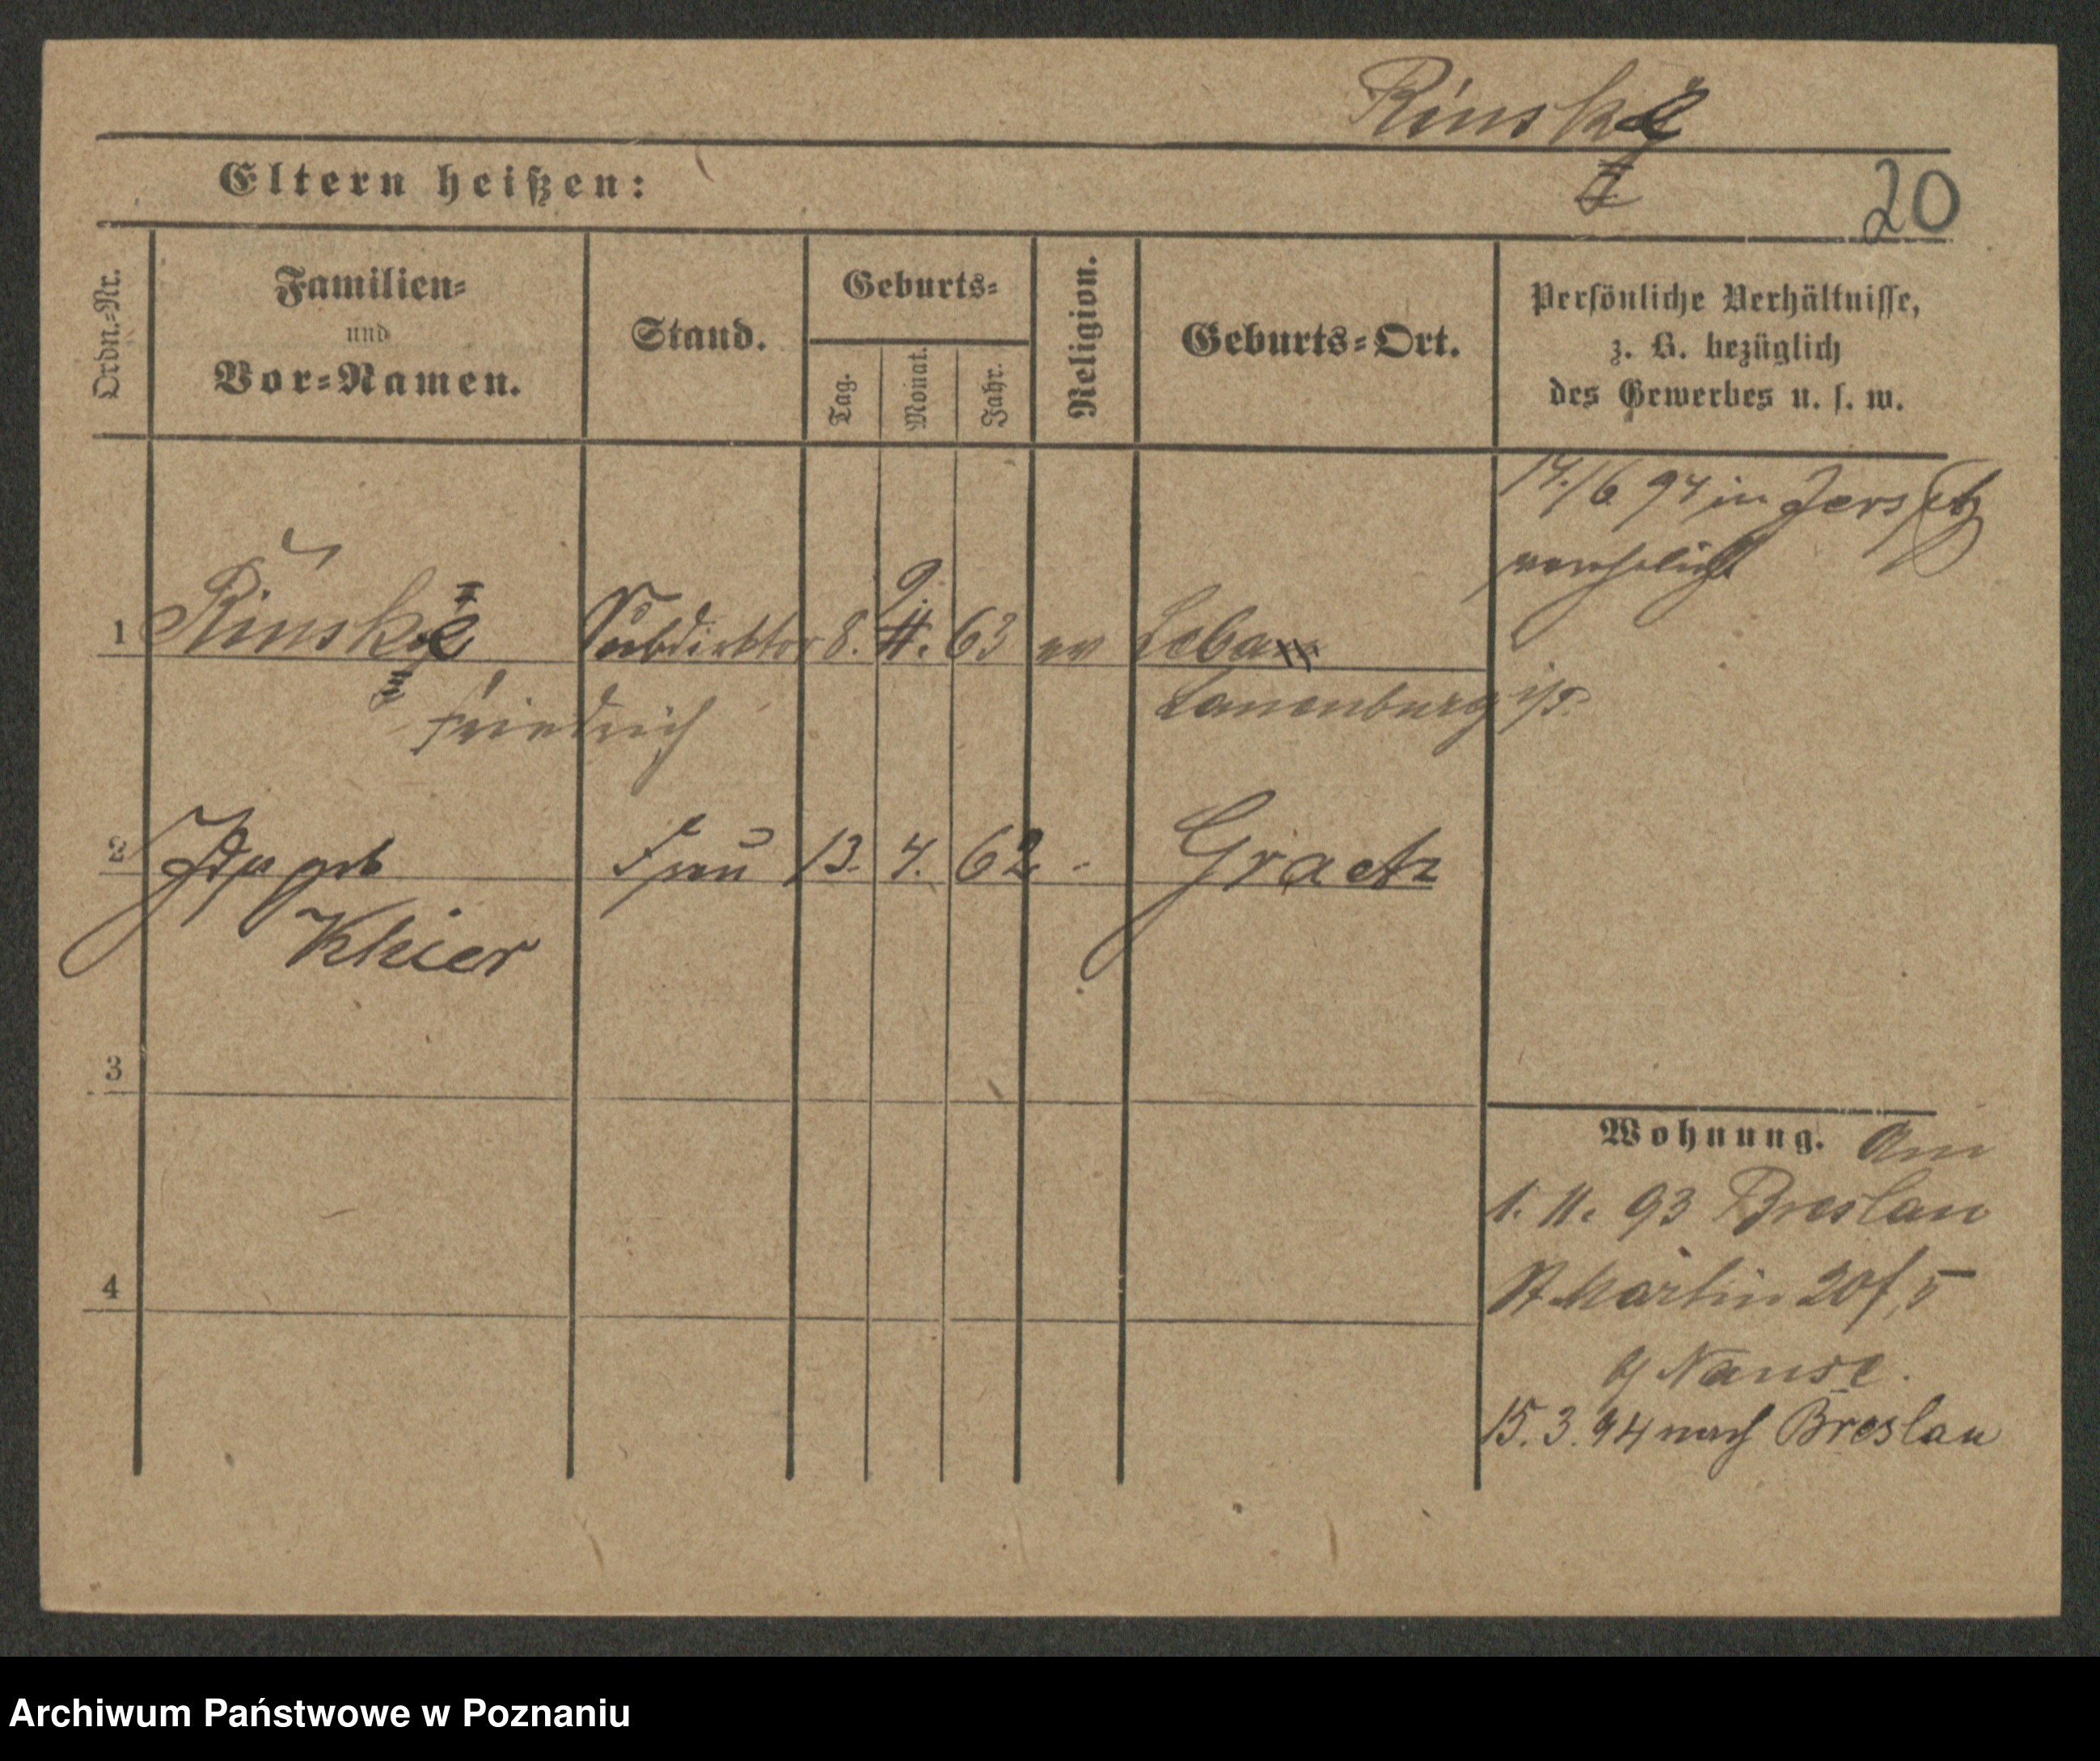 Rinske
20
Eltern heißen:
Ordn.=Nr.
Familien=
und
Vor=Namen.
Stand.
Geburts=
Tag.
Monat.
Jahr.
Religion.
Geburts=Ort.
Persönliche Verhältnisse,
z. B. bezüglich
des Gewerbes u. s. w.
14./6 94 in Jersitz
verehelicht
1 Rinske Subdirektor 8. 9. 63 ev Leba
Friedrich Lauenburg i/P.
2 Ida geb Frau 13. 4. 62 - Graetz
Khier
3
Wohnung. Am
1. 11. 93 Breslau
4
St Martin 20 5
b/ Nause.
15. 3. 94 nach Breslau
Archiwum Państwowe w Poznaniu